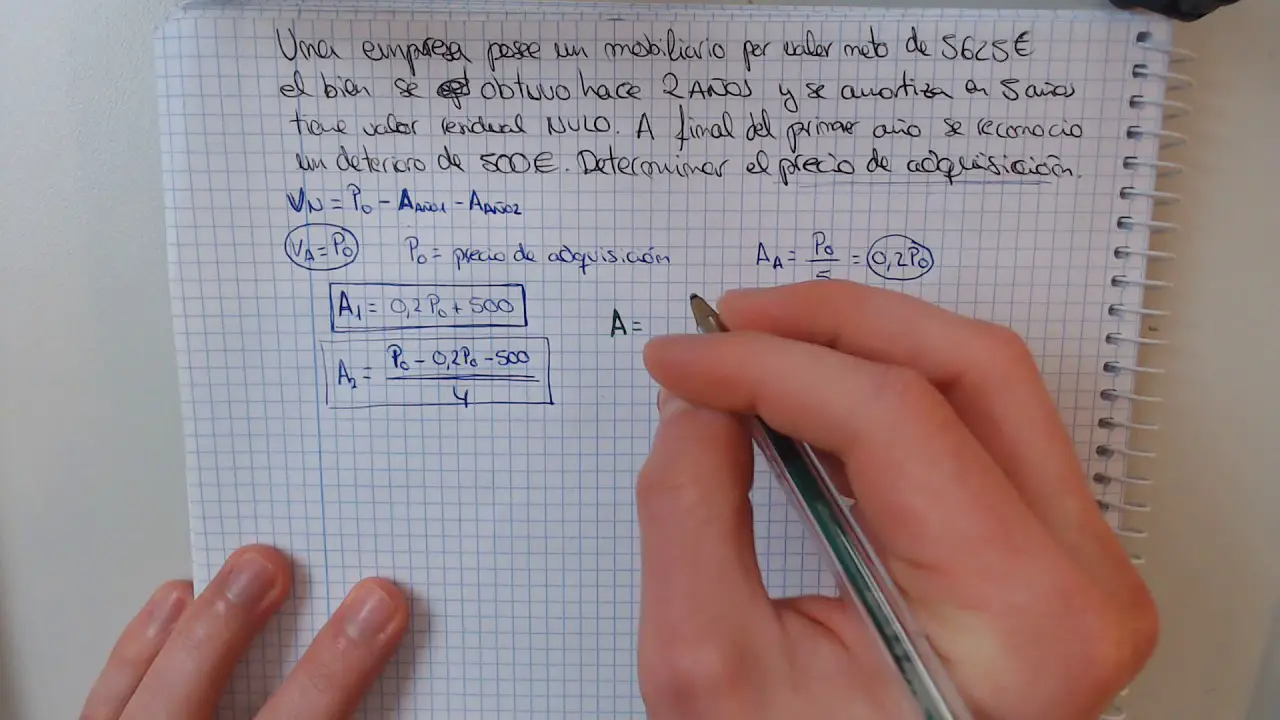 Una empresa posee un mobiliario por valor neto de 5625€
el bien se obtuvo hace 2 AÑOS y se amortiza en 5 años
tiene valor residual NULO. A final del primer año se reconocio
un deterioro de 500€. Determinar el precio de adquisición.
VN = P0 - AAÑO1 - AAÑO2
VA = P0 P0 = precio de adquisición AA = P0/5 = 0,2P0
A1 = 0,2P0 + 500 A =
A2 = (P0 - 0,2P0 - 500)/4